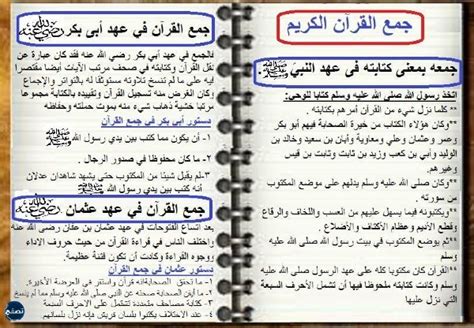 جمع القرآن الكريم
جمعه بمعنى كتابته فى عهد النبي ﷺ:
اتخذ رسول الله صلى الله عليه وسلم كتابا للوحي:
** كلما نزل شيء من القرآن أمرهم بكتابته .
**وكان هؤلاء الكتاب من خيرة الصحابة فيهم أبو بكر
وعمر وعثمان وعلي ومعاوية وأبان بن سعيد وخالد بن
الوليد وأبي بن كعب وزيد بن ثابت وثابت بن قيس
وغيرهم
**وكان صلى الله عليه وسلم يدلهم على موضع المكتوب
من سورته .
**ويكتبونه فيما يسهل عليهم من العسب واللخاف والرقاع
وقطع الأديم وعظام الأكتاف والأضلاع .
**ثم يوضع المكتوب في بيت رسول الله صلى الله عليه
وسلم
القرآن كان مكتوبا كله على عهد الرسول صلى الله عليه
وسلم، وكانت كتابته ملحوظا فيها أن تشمل الأحرف السبعة
التي نزل عليها
جمع القرآن في عهد أبى بكر رضي الله عنه
فالجمع في عهد أبي بكر رضي الله عنه فقد كان عبارة عن
نقل القرآن وكتابته في صحف مرتب الآيات أيضا مقتصرا
فيه على ما لم تنسخ تلاوته مستوثقا له بالتواتر والإجماع
وكان الغرض منه تسجيل القرآن وتقييده بالكتابة مجموعا
مرتبا خشية ذهاب شيء منه بموت حملته وحفاظه
دستور أبي بكر في جمع القرآن
١- أن يكون مما كتب بين يدي رسول الله ﷺ
٢- ما كان محفوظا في صدور الرجال .
٣-لم يقبل شيئا من المكتوب حتى يشهد شاهدان عدلان
أنه كتب بين يدي رسول الله ﷺ
جمع القرآن في عهد عثمان رضي الله عنه
بعد اتساع الفتوحات في عهد عثمان بن عفان رضي الله عنه
واختلف الناس في قراءة القرآن من حيث حروف الاداء ووجوه
القراءات وكادت أن تكون فتنة عظيمة.
دستور عثمان في جمع القرآن
١- ما تحقق الصحابة أنه قرآن واستقر في العرضة الأخيرة.
٢- ما أيقن الصحابة صحته عن النبي صلى الله عليه وسلم مما لم ينسخ
٣- كتابة مصاحف متعددة تشتمل على الأحرف السبعة
٤- إذا اختلفوا يكتبوه بلسان قريش فإنه نزل بلسانهم